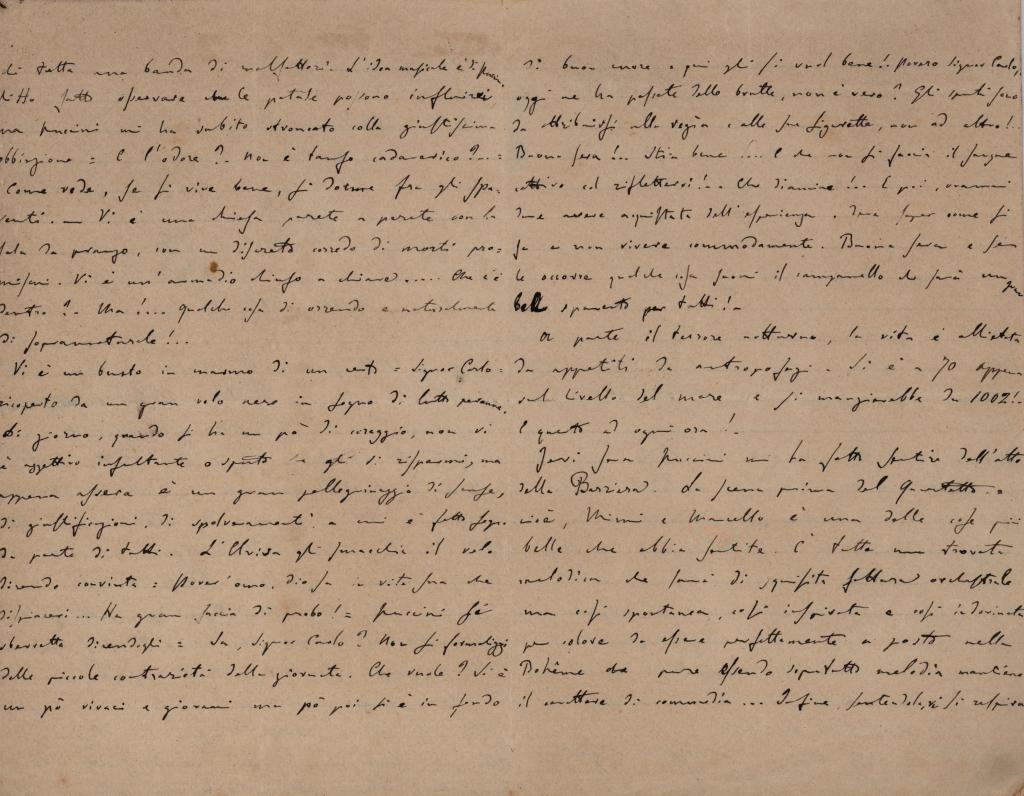 di tutta una banda di malfattori. L'idea musicale è di Puccini
Ho fatto osservare che le patate possono influire
ma Puccini mi ha subito stroncato colla giustissima
obbiezione = E l'odore? – Non è tanfo cadaverico?...=
Come vede, se si vive bene, si dorme fra gli spa=
venti. — Vi è una chiesa parete a parete con la
sala da pranzo, con un discreto corredo di morti pro=
Vi è un'armadio chiuso a chiave.... Che c'è
dentro? – Ma!... qualche cosa di orrendo e naturalmente
di sopranaturale!..
Vi è un busto in marmo di un certo = Signor Carlo =
ricoperto da un gran velo nero in segno di lutto perenne.
Di giorno, quando si ha un pò di coraggio, non vi
è aggettivo insultante o sputo che gli si risparmi, ma
appena assera è un gran pellegrinaggio di scuse,
di giustificazioni, di spolveramenti a cui è fatto segno
da parte di tutti. L'Elvira gli il velo
dicendo convinta = Pover'omo, Dio sa in vita sua che
dispiaceri... Ha gran facia di probo! = Puccini si
sberretta dicendogli = Sa, Signor Carlo? Non si formalizzi
delle piccole contrarietà della giornata. Che vuole? Si è
un pò vivaci e giovani ma pò poi si è in fondo
di buon cuore e qui gli si vuol bene! Povero Signor Carlo,
oggi ne ha passate delle brutte, non è vero? Gli sputi sono
da attribuirsi alla e alle sue sigarette, non ad altro!..
Buona sera!.. Stia bene!... E che non si faccia il sangue
cattivo ed rifletterci!.. Che diamine!.. E poi, oramai
deve avere acquistata dell'esperienza. Deve saper come si
fa a non vivere commodamente. Buona sera e se
le occorre qualche cosa suoni il campanello che sarà un gran
bel spavento per tutti!–
A parte il terrore notturno, la vita è allietata
da appetiti da antropofagi. Si è a 70 appena
sul livello del mare e si mangierebbe da 1002!..
E questo ad ogni ora!–
Jeri sera Puccini mi ha fatto sentire dell'atto
della Barriera. La scena prima del Quartetto =
cioè, Mimi e Marcello è una delle cose più
belle che abbia sentite. È tutta una trovata
melodica che sarà di squisita fattura orchestrale
ma così spontanea, così inspirata e così indovinata
per colore da essere perfettamente a posto nella
Bohème che pure essendo soprattutto melodia mantiene
il carattere di commedia... Infine, sentendola, vi si respira